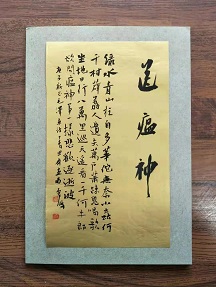 送瘟神
绿水青山枉自多華佗無奈小虫何
千村薜荔人遺矢萬户蕭疏鬼唱歌
坐地日行八萬里巡天遥看一千河牛郎
欲問瘟神事一樣悲歡逐逝波